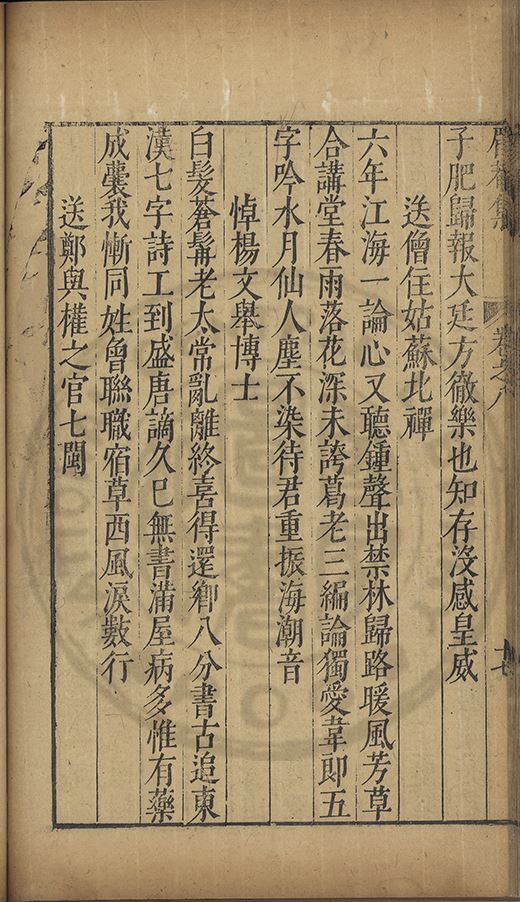 卷之八
子肥歸報大廷方徹樂也知存沒感皇威
送僧住姑蘇北禪
六年江海一論心又聽鍾聲出禁林歸路暖風芳草
合講堂春雨落花深未誇葛老三編論獨愛韋郎五
字吟水月仙人塵不染待君重振海潮音
悼楊文舉博士
白髮蒼髯老太常亂離終喜得還鄉八分書古追東
漢七字詩工到盛唐謫久已無書滿屋病多惟有藥
成囊我慚同姓曾聯職宿草西風淚數行
送鄭與權之官七閩